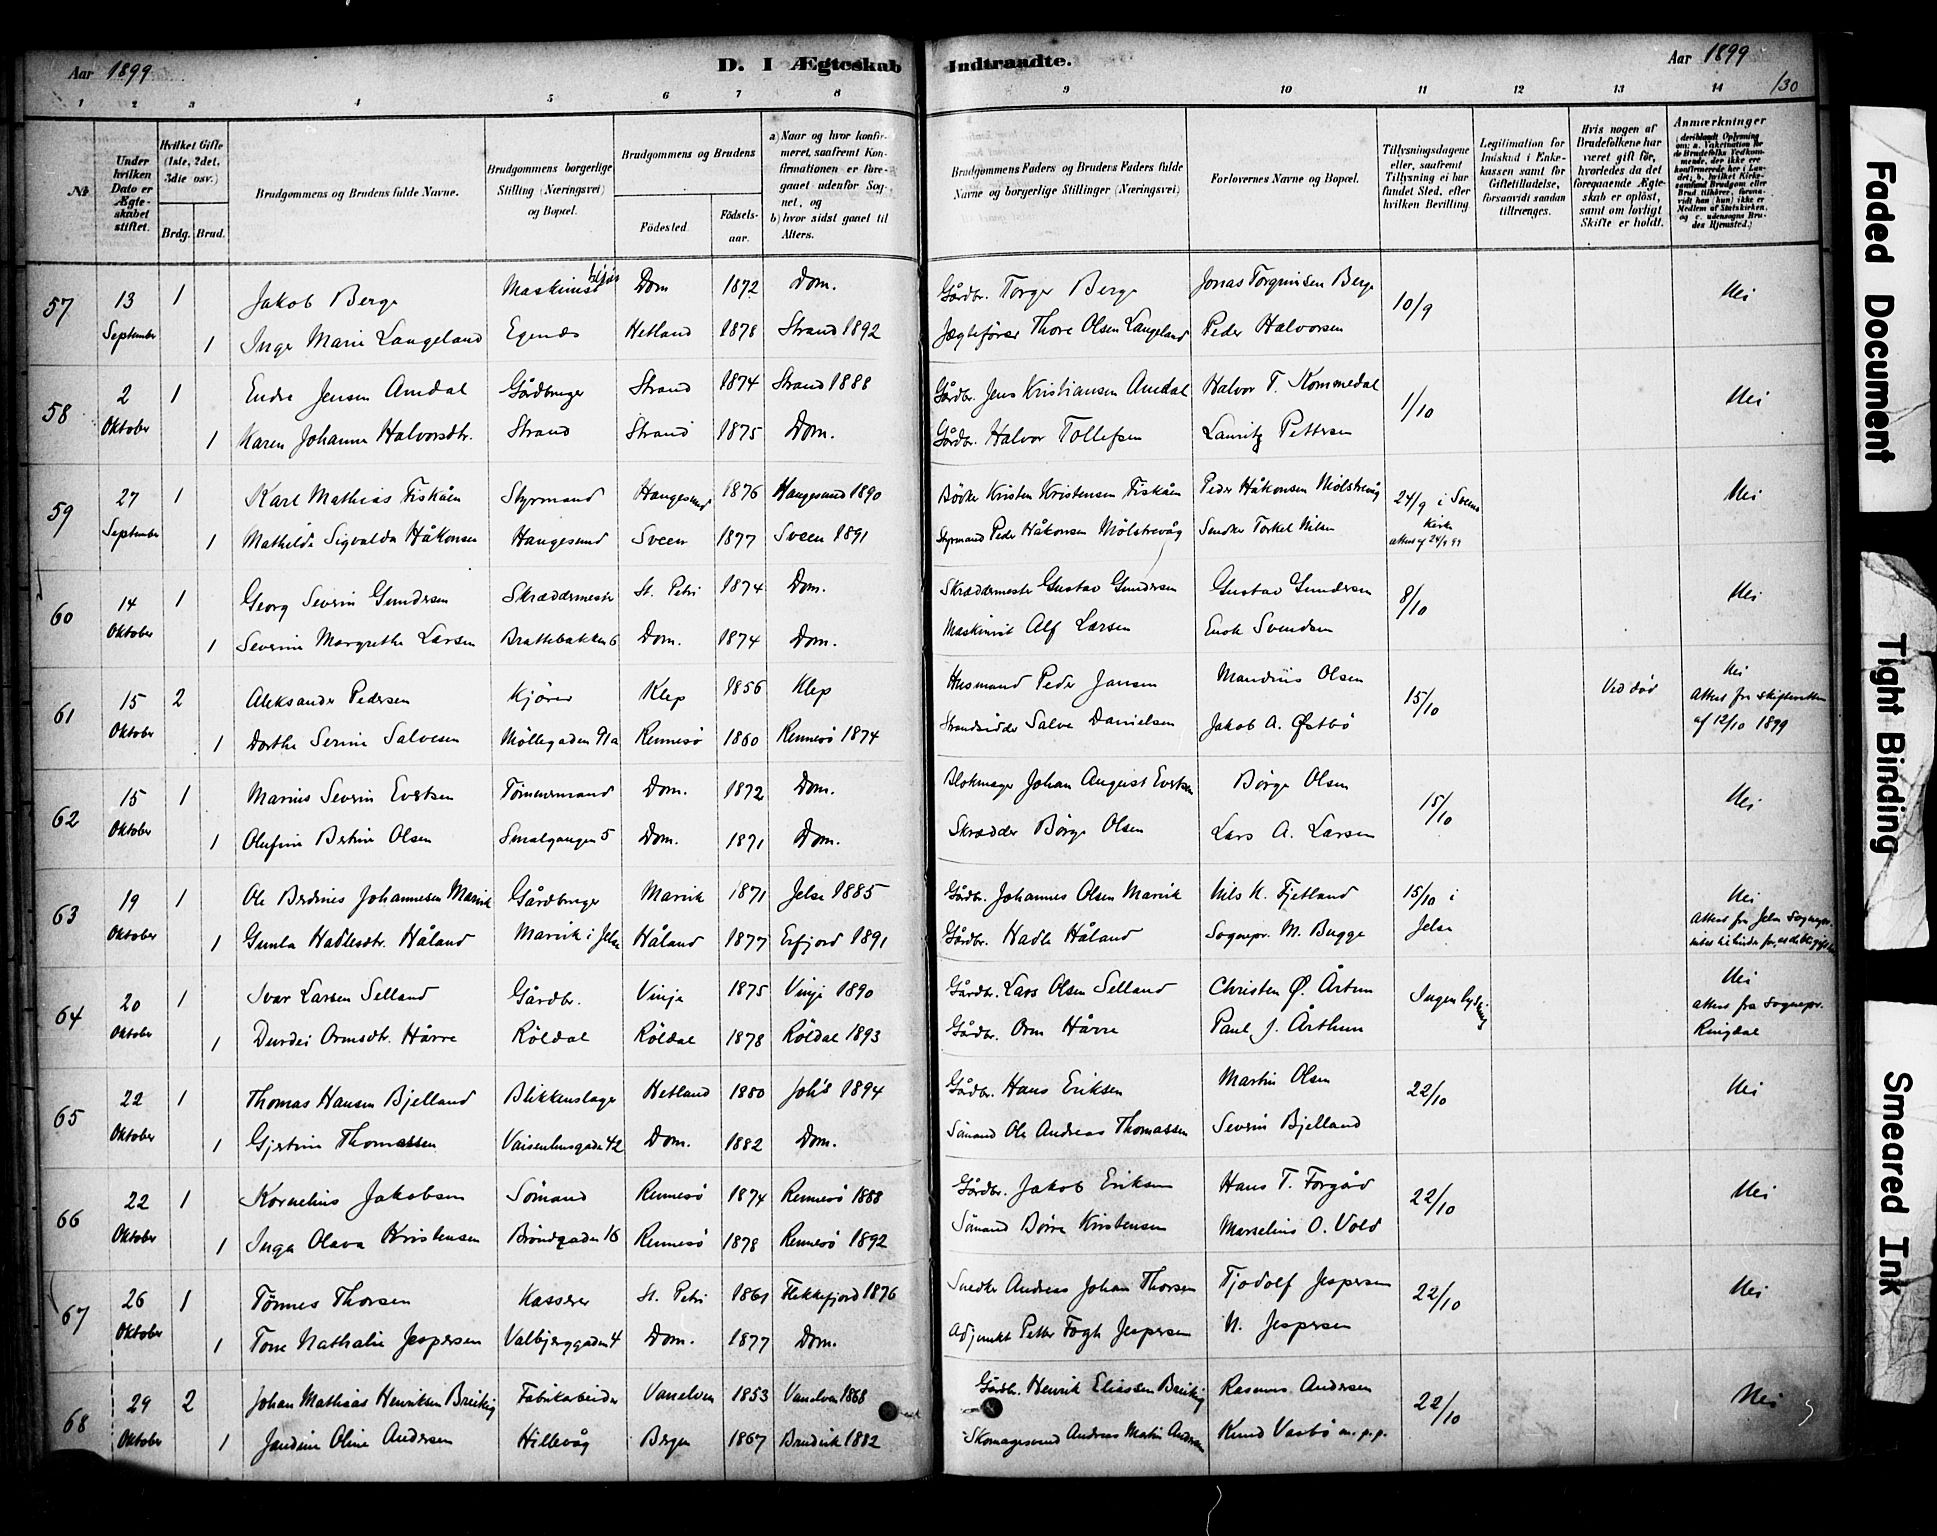 Aar 1899
D. I Ægteskab Indtraadte.
Aar 1899
130
1 2 3 4 5 6 7 8 9 10 11 12 13 14
№
Under hvilken Dato er Ægteskabet stiftet.
Hvilket Gifte (1ste, 2det, 3die osv.)
Brdg. Brud.
Brudgommens og Brudens fulde Navne.
Brudgommens borgerlige Stilling (Næringsvei) og Bopæl.
Brudgommens og Brudens
Födested.
Födsels-aar.
a) Naar og hvor konfirmeret, saafremt Konfirmationen er foregaaet udenfor Sognet, og
b) hvor sidst gaaet til Alters.
Brudgommens Faders og Brudens Faders fulde Navne og borgerlige Stillinger (Næringsvei)
Forlovernes Navne og Bopæl.
Tillysningsdagene eller, saafremt Tillysning ei har fundet Sted, efter hvilken Bevilling
Legitimation for Indskud i Enkekassen samt for Giftetilladelse, forsaavidt saadan tiltrænges.
Hvis nogen af Brudefolkene har været gift för, hvorledes da det foregaaende Ægteskab er oplöst, samt om lovligt Skifte er holdt.
Anmærkninger (deriblandt Oplysning om: a. Vakcination for de Brudefolks Vedkommende, der ikke ere konfirmerede her i Landet; b. hvilket Kirkesamfund Brudgom eller Brud tilhörer, forsaavidt han (hun) ikke er Medlem af Statskirken, og c. udensogns Brudes Hjemsted.)
57 13 1 Jakob Berge Maskinist Dom 1872 Dom. Gårdbr. Torger Berge Jonas Torgrimsen Berge 10/9 Nei
September 1 Inge Marie Langeland Egenæs Hetland 1878 Strand 1892 Jægtefører Thore Olsen Langeland Peder Halvorsen
58 2 1 Endre Jensen Amdal Gårdbruger Strand 1874 Strand 1888 Gårdbr. Jens Kristiansen Amdal Halvor T. Kommedal 1/10 Nei
Oktober 1 Karen Johanne Halvorsdtr. Strand Strand 1875 Dom. Gårdbr. Halvor Tollefsen Lauritz Pettersen
59 27 1 Karl Mathias Fiskåen Styrmand Haugesund 1876 Haugesund 1890 Bödker Kristen Kristensen Fiskåen Peder Håkonsen Mölstrevåg 24/9 i Sveens Kirke Nei
September 1 Mathilde Sigvalda Håkonsen Haugesund Sveen 1877 Sveen 1891 Styrmand Peder Håkonsen Mölstrevåg Snedker Torkel Nilsen attest af 24/9 99
60 14 1 Georg Severin Gundersen Skræddermester St. Petri 1874 Dom. Skræddermester Gustav Gundersen Gustav Gundersen 8/10 Nei
Oktober 1 Severine Margrethe Larsen Brattebakken 6 Dom. 1874 Dom. Maskinist Alf Larsen Enok Svendsen
61 15 2 Aleksander Pedersen Kjörer Klep 1856 Klep Husmand Peder Jansen Mandius Olsen 15/10 Ved död Nei
Attest fra skifteretten af 12/10 1899
Oktober 1 Dorthe Serine Salvesen Möllegaden 91a Rennesö 1860 Rennesö 1874 Strandsidder Salve Danielsen Jakob A. Østbö
62 15 1 Marius Severin Evertsen Tömmermand Dom. 1872 Dom. Blokmager Johan August Evertsen Börge Olsen 15/10 Nei
Oktober 1 Olufine Bertine Olsen Smalgangen 5 Dom. 1871 Dom. Skrædder Börge Olsen Lars A. Larsen
63 19 1 Ole Berdines Johannesen Marvik Gårdbruger Marvik 1871 Jelse 1885 Gårdbr. Johannes Olsen Marvik Nils K. Fjetland 15/10 i Jelse Nei
Attest fra Jelse Sognepr.
Oktober 1 Gunla Hadlesdtr. Håland Marvik i Jelse Håland 1877 Erfjord 1891 Gårdbr. Hadle Håland Sognepr. M. Bugge
64 20 1 Ivar Larsen Selland Gårdbr. Vinje 1875 Vinje 1890 Gårdbr. Lars Olsen Selland Christen Ø. Årtun Ingen lysning Nei
attest fra Sognepr. Ringdal
Oktober 1 Durdei Ormsdtr. Hårre Röldal Röldal 1878 Röldal 1893 Gårdbr. Orm Hårre Paul J. Årthun
65 22 1 Thomas Hansen Bjelland Blikkenslager Hetland 1880 Joh's 1894 Gårdbr. Hans Eriksen Martin Olsen 22/10 Nei
Oktober 1 Gjertine Thomassen Vaisenhusgaden 42 Dom. 1882 Dom. Sömand Ole Andreas Thomassen Severin Bjelland
66 22 1 Kornelius Jakobsen Sömand Rennesö 1874 Rennesö 1888 Gårdbr. Jakob Eriksen Hans T. Forgård 22/10 Nei
Oktober 1 Inga Olava Kristensen Bröndgaden 16 Rennesö 1878 Rennesö 1892 Sömand Börre Kristensen Marselius O. Vold
67 26 1 Tönnes Thorsen Kasserer St. Petri 1861 Flekkefjord 1876 Snedker Andreas Johan Thorsen Tjodolf Jespersen 22/10 Nei
Oktober 1 Tone Nathalie Jespersen Valbjerggaden 4 Dom. 1877 Dom. Adjunkt Petter Fogh Jespersen N. Jespersen
68 29 2 Johan Mathias Henriksen Breivig Fabrikarbeider Vanelven 1853 Vanelven 1868 Gårdbr. Henrik Eliassen Breivig Rasmus Andersen 22/10 Nei
Oktober 1 Jandine Oline Andersen Hillevåg Bergen 1867 Brudvik 1882 Skomagersvend Andreas Matin Andersen Knud Vasbö m.p.p.
Faded Document
Tight Binding
Smeared Ink